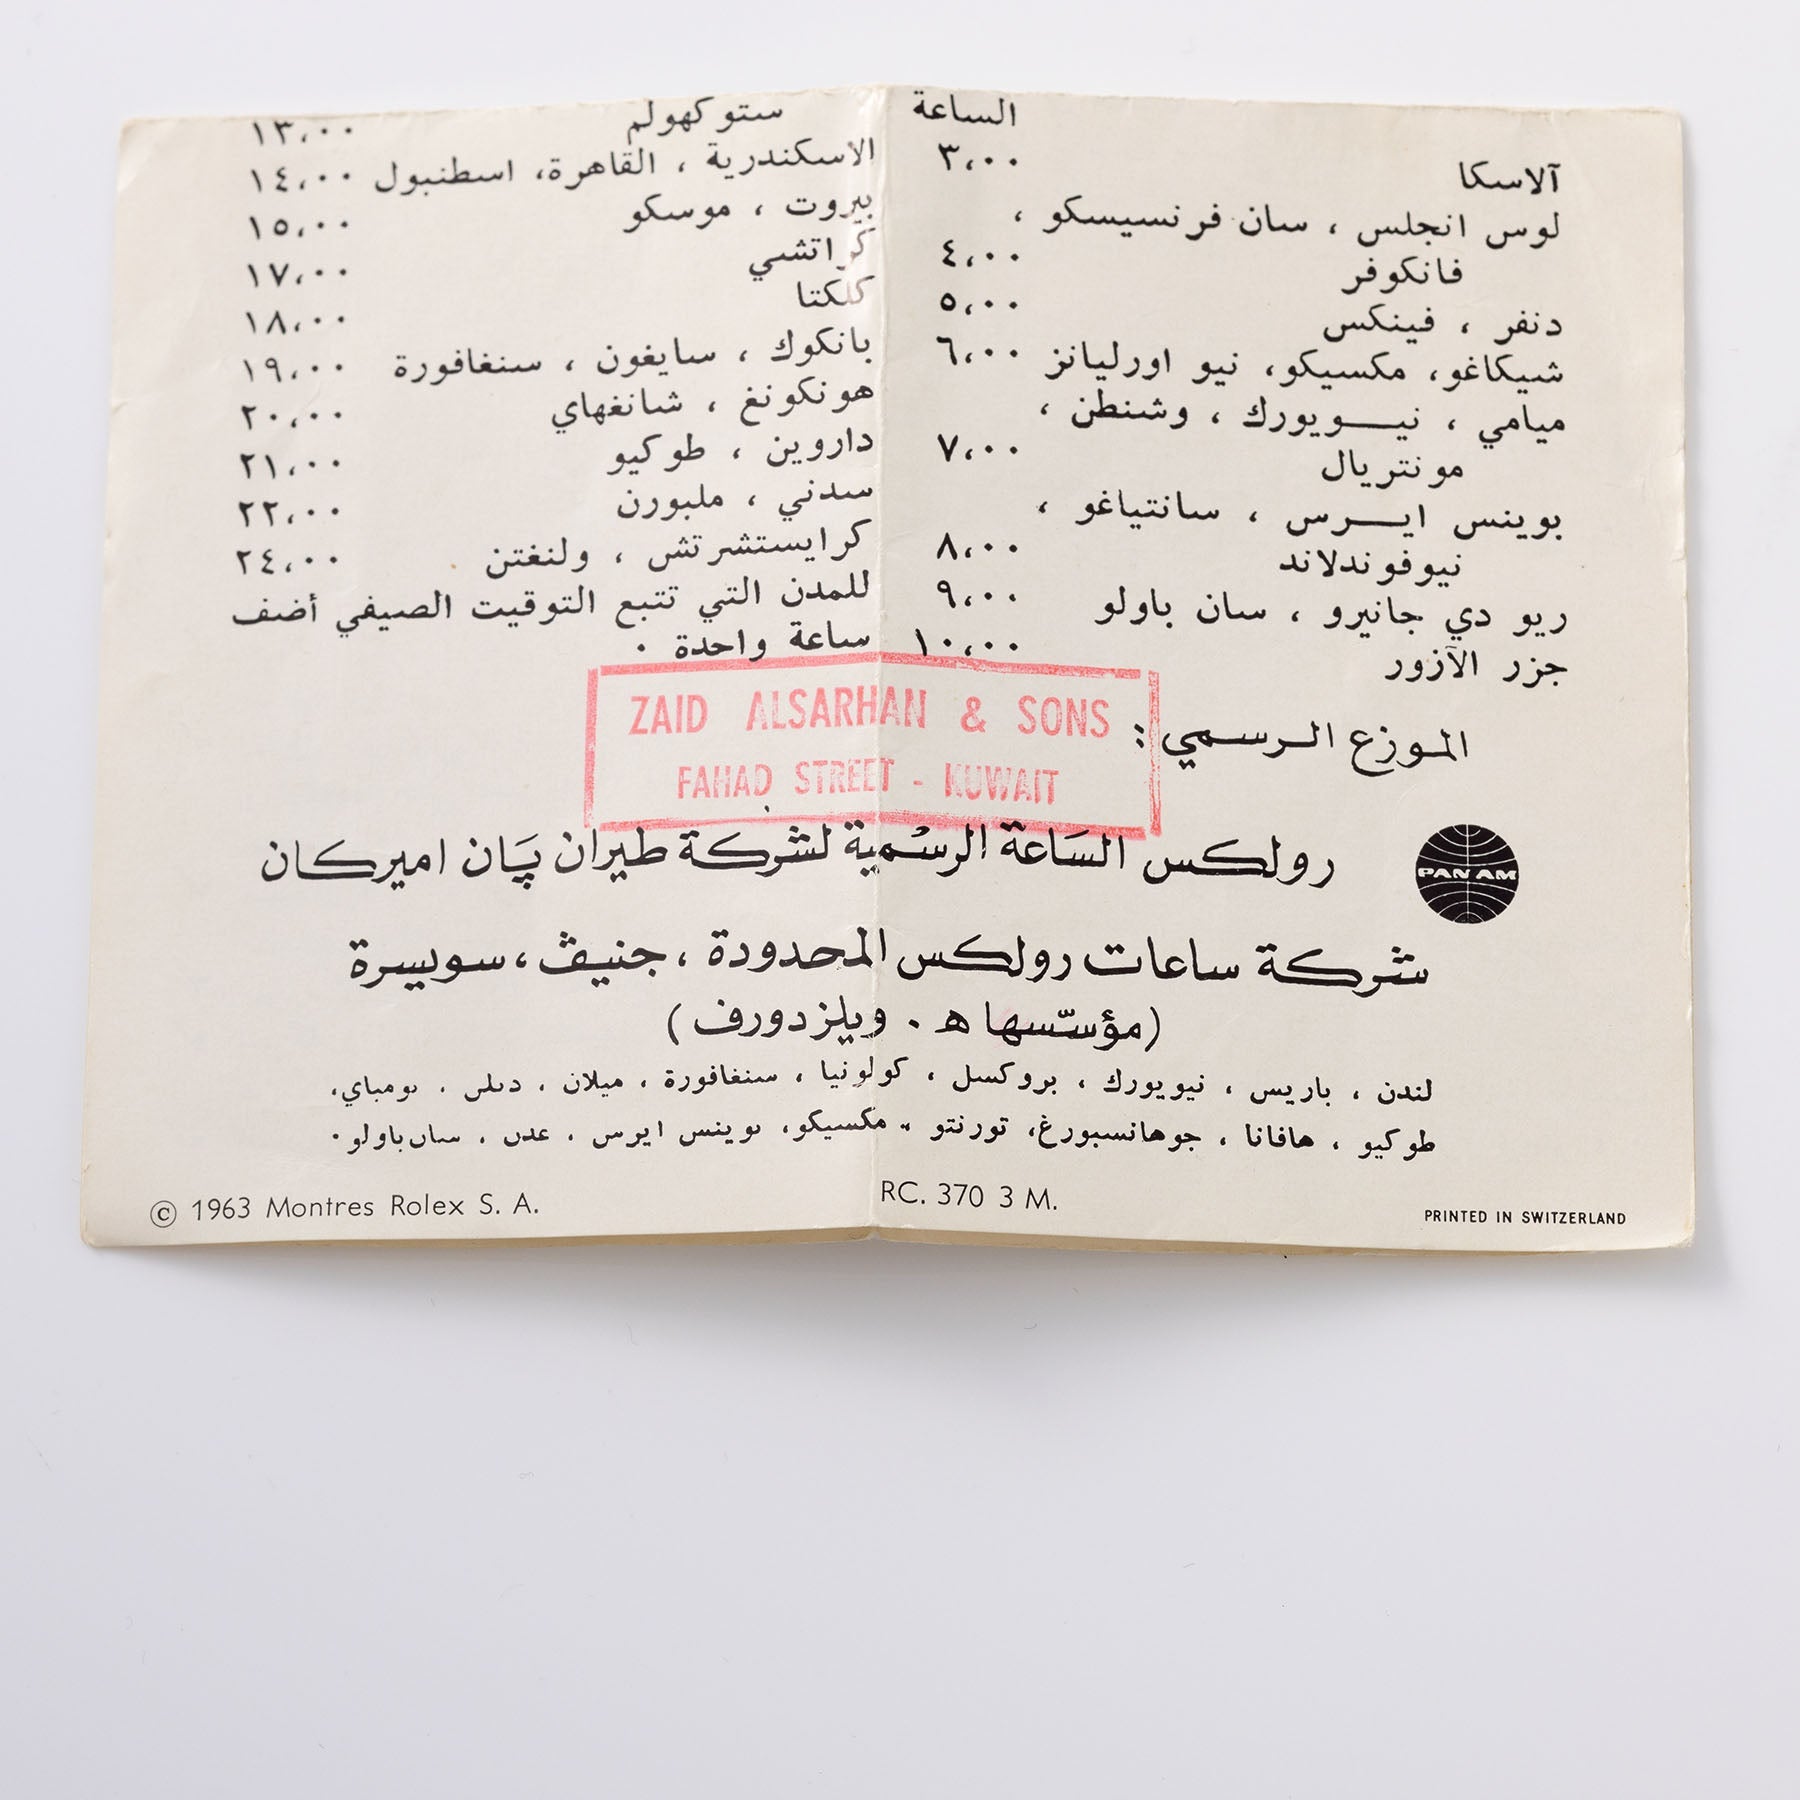 الساعة
آلاسكا ٣،٠٠
لوس انجلس ، سان فرنسيسكو ،
فانكوفر ٤،٠٠
دنفر ، فينكس ٥،٠٠
شيكاغو، مكسيكو، نيو اورليانز ٦،٠٠
ميامي ، نيـــويورك ، وشنطن ،
مونتريال ٧،٠٠
بوينس ايــرس ، سانتياغو ،
نيوفوندلاند ٨،٠٠
ريو دي جانيرو ، سان باولو ٩،٠٠
جزر الآزور ١٠،٠٠
ستوكهولم ١٣،٠٠
الاسكندرية ، القاهرة، اسطنبول ١٤،٠٠
بيروت ، موسكو ١٥،٠٠
كراتشي ١٧،٠٠
كلكتا ١٨،٠٠
بانكوك ، سايغون ، سنغافورة ١٩،٠٠
هونكونغ ، شانغهاي ٢٠،٠٠
داروين ، طوكيو ٢١،٠٠
سدني ، ملبورن ٢٢،٠٠
كرايستشرتش ، ولنغتن ٢٤،٠٠
للمدن التي تتبع التوقيت الصيفي أضف
ساعة واحدة .
الموزع الرسمي :
ZAID ALSARHAN & SONS
FAHAD STREET - KUWAIT
PAN AM
رولكس السَاعة الرسْمية لشركة طيران پَان اميركان
شركة ساعات رولكس المحدودة ، جنيڤ ، سويسرة
(مؤسّسها ه . ويلزدورف)
لندن ، باريس ، نيويورك ، بروكسل ، كولونيا ، سنغافورة ، ميلان ، دبلن ، بومباي،
طوكيو ، هافانا ، جوهانسبورغ، تورنتو ،، مكسيكو، بوينس ايرس ، عدن ، سان باولو .
© 1963 Montres Rolex S. A.
RC. 370 3 M.
PRINTED IN SWITZERLAND